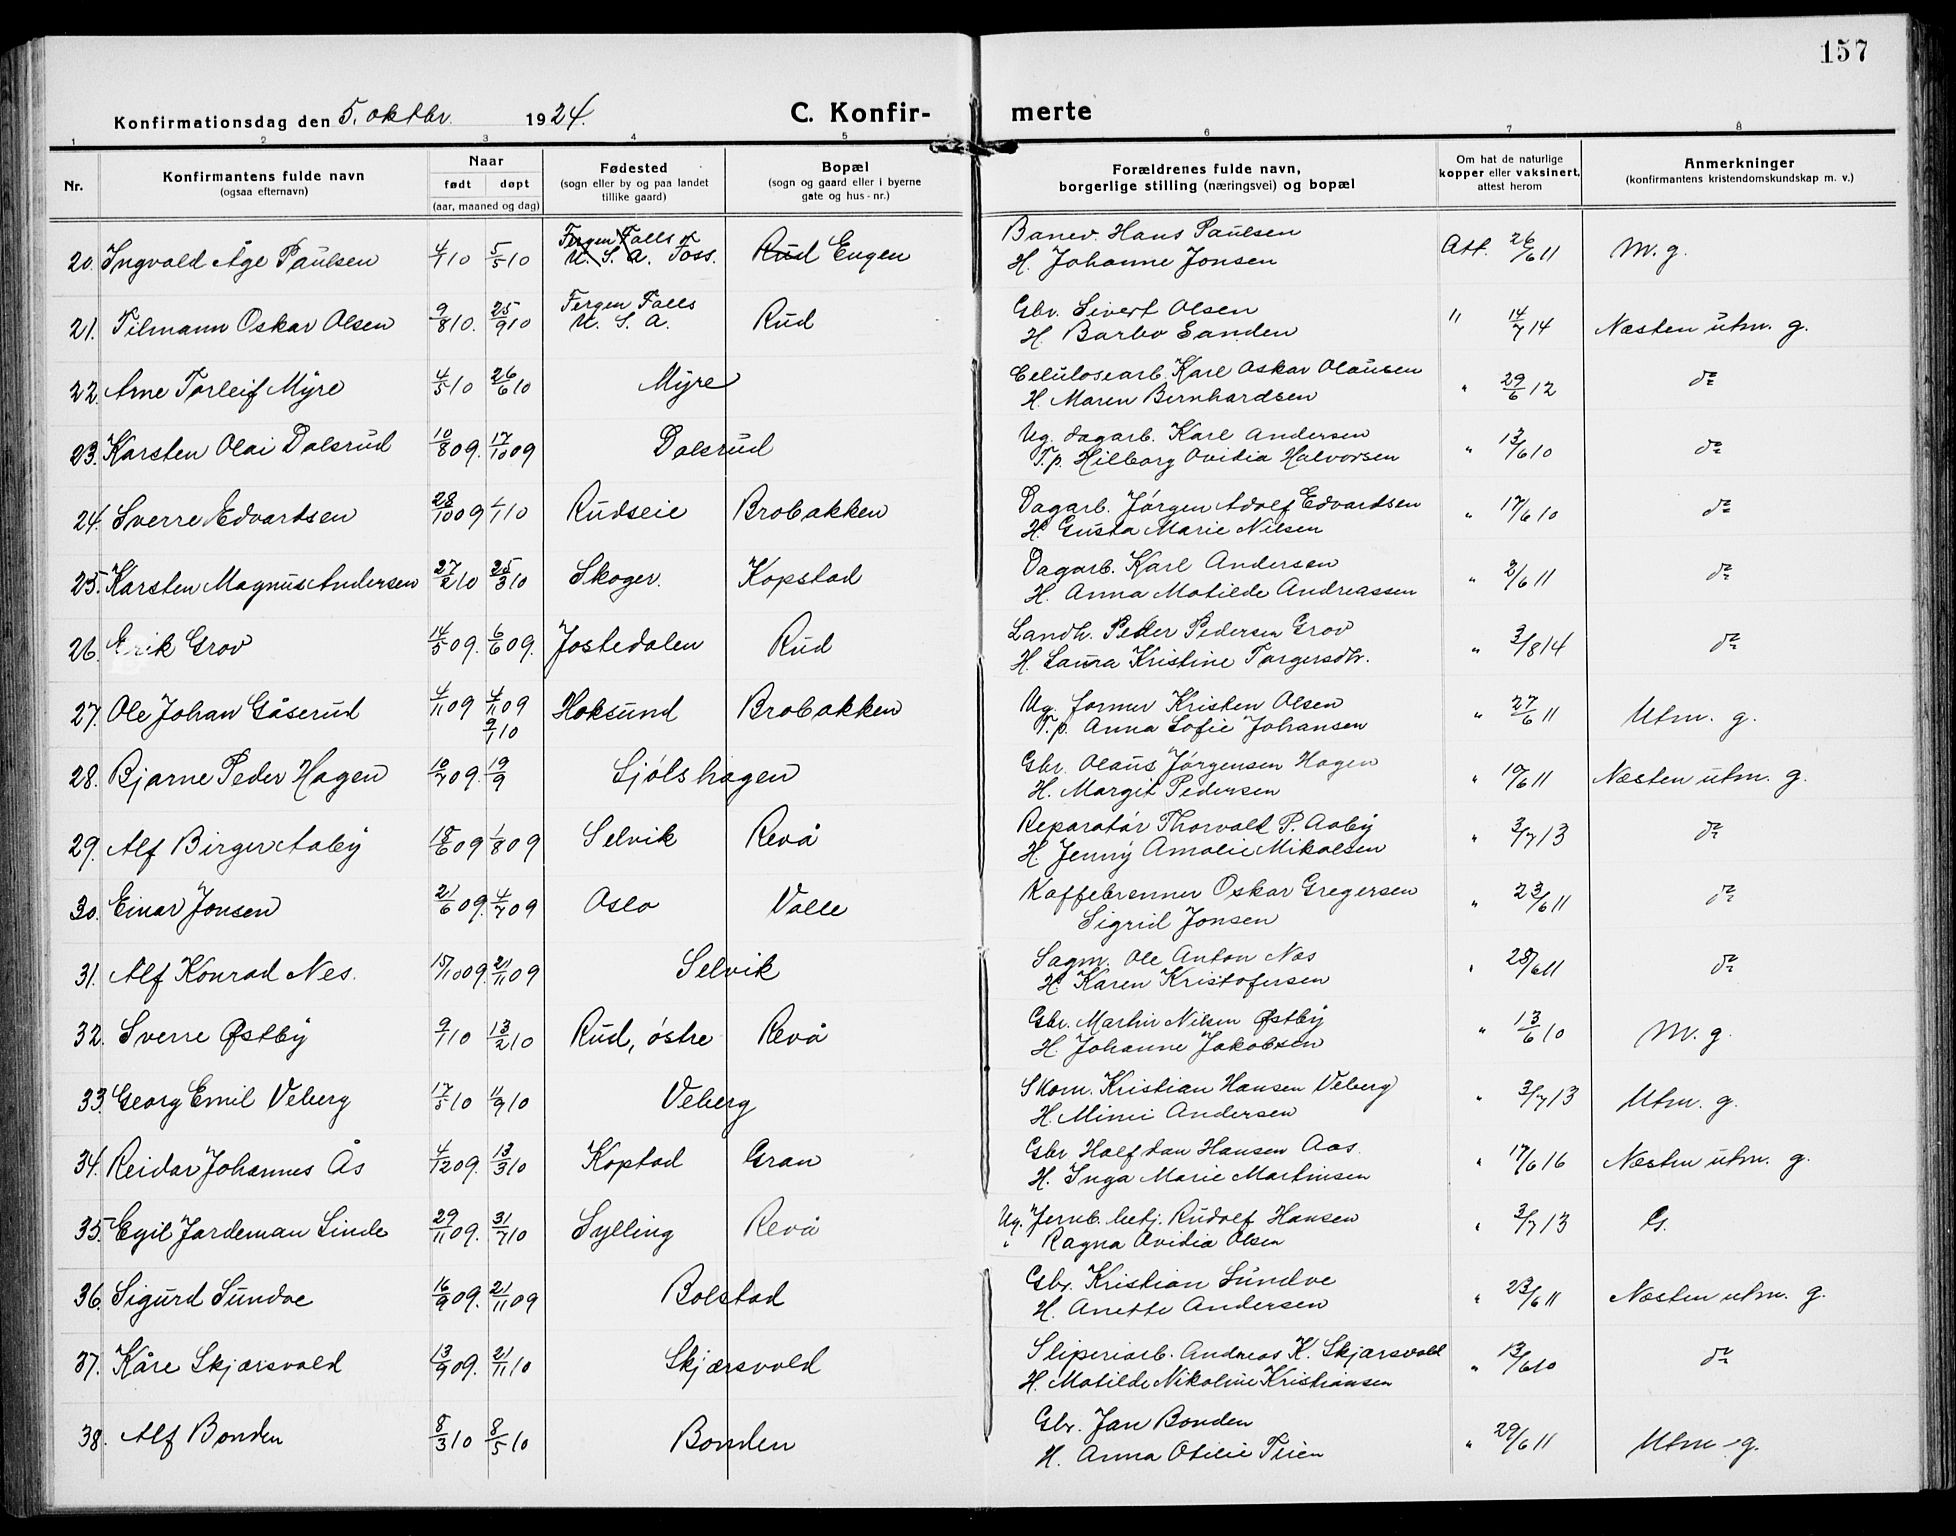 157
Konfirmationsdag den 5. oktbr. 1924.
C. Konfir- merte
1 2 3 4 5 6 7 8
Nr.
Konfirmantens fulde navn
(ogsaa efternavn)
Naar
født døpt
(aar, maaned og dag)
Fødested
(sogn eller by og paa landet
tillike gaard)
Bopæl
(sogn og gaard eller i byerne
gate og hus-nr.)
Forældrenes fulde navn,
borgerlige stilling (næringsvei) og bopæl
Om hat de naturlige
kopper eller vaksinert,
attest herom
Anmerkninger
(konfirmantens kristendomskundskap m. v.)
Fergen Falls
Banev. Hans Paulsen
20. Ingvald Åge Paulsen 4/1 10 5/5 10 U. S. A. Foss. Rud Eugen Att. 26/6 11 M. g.
H. Johanne Jonsen
Fergen Falls
Gbr. Sivert Olsen
21. Tilmann Oskar Olsen 9/8 10. 25/9 10 U. S. A. Rud " 14/7 14 Næsten utm. g.
H. Barbo Sanden
Celulosearb. Karl Oskar Olausen
22. Arne Torleif Myre 4/5 10 26/6 10 Myre " 29/6 12 do
H. Maren Bernhardsen
Ug. dagarb. Karl Andersen
23. Karsten Olai Dalsrud 10/8 09. 17/10 09 Dalsrud " 13/6 10 do
T.p. Hilborg Ovidia Halvorsen
Dagarb. Jørgen Adolf Edvardsen
24. Sverre Edvartsen 28/10 09 1/1 10 Rudseie Brobakken " 17/6 10 do
H. Gusta Marie Nilsen
Dagarb. Karl Andersen
25. Karsten Magnus Andersen 27/2 10 25/3 10 Skoger. Kopstad " 2/6 11 do
H. Anna Matilde Andreassen
Landh. Peder Pedersen Grov
26. Erik Grov 14/5 09. 6/6 09. Jostedalen Rud " 3/8 14 do
H. Laura Kristine Torgersdtr.
Ug. former Kristen Olsen
27. Ole Johan Gåserud 4/11 09 4/11 09 Hoksund Brobakken " 27/6 11 Utm. g.
9/1 10
T.p. Anna Sofie Johansen
Gbr. Olaus Jørgensen Hagen
28. Bjarne Peder Hagen 10/7 09. 19/9 Sjølshagen " 10/6 11 Næsten utm. g.
H. Margit Pedersen
Reparatør Thorvald P. Aaby
29. Alf Birger Aaby 18/6 09 1/8 09 Selvik Revå " 3/7 13 do
H. Jenny Amalie Mikalsen
Kaffebrenner Oskar Gregersen
30. Einar Jonsen 21/6 09. 4/7 09 Oslo Valle " 23/6 11 do
Sigrid Jonsen
Sagm. Ole Anton Næs
31. Alf Konrad Nes. 15/10 09. 21/11 09 Selvik " 28/6 11 do
H. Karen Kristofersen
Gbr. Martin Nilsen Østby
32. Sverre Østby 9/1 10 13/2 10 Rud, østre Revå " 13/6 10 M. g.
H. Johanne Jakobsen
Skom. Kristian Hansen Veberg
33. Georg Emil Veberg 17/5 10 11/9 10 Veberg " 3/7 13 Utm. g.
H. Mimi Andersen
Gbr Halfdan Hansen Aas.
34. Reidar Johannes Ås 4/12 09. 13/3 10 Koptad Gran " 17/6 16 Næsten utm. g.
H. Inga Marie Martinsen
Ug. Jernb. betj. Rudolf Hansen
35. Egil Jardeman Linde 29/11 09. 31/7 10 Sylling Revå " 3/7 13 G.
" Ragna Ovidia Olsen
Gbr. Kristian Sundve
36. Sigurd Sundve 16/9 09. 21/11 09 Bolstad " 23/6 11 Næsten utm. g.
H. Anette Andersen
Sliperiarb. Andreas K. Skjærsvold
37. Kåre Skjærsvold 13/9 09. 21/11 10 Skjærsvold " 13/6 10 do
H. Matilde Nikoline Kristiansen
Gbr. Jan Bonden
38. Alf Bonden 8/3 10 8/5 10 Bonden " 29/6 11 Utm. g.
H. Anna Otilie Teien